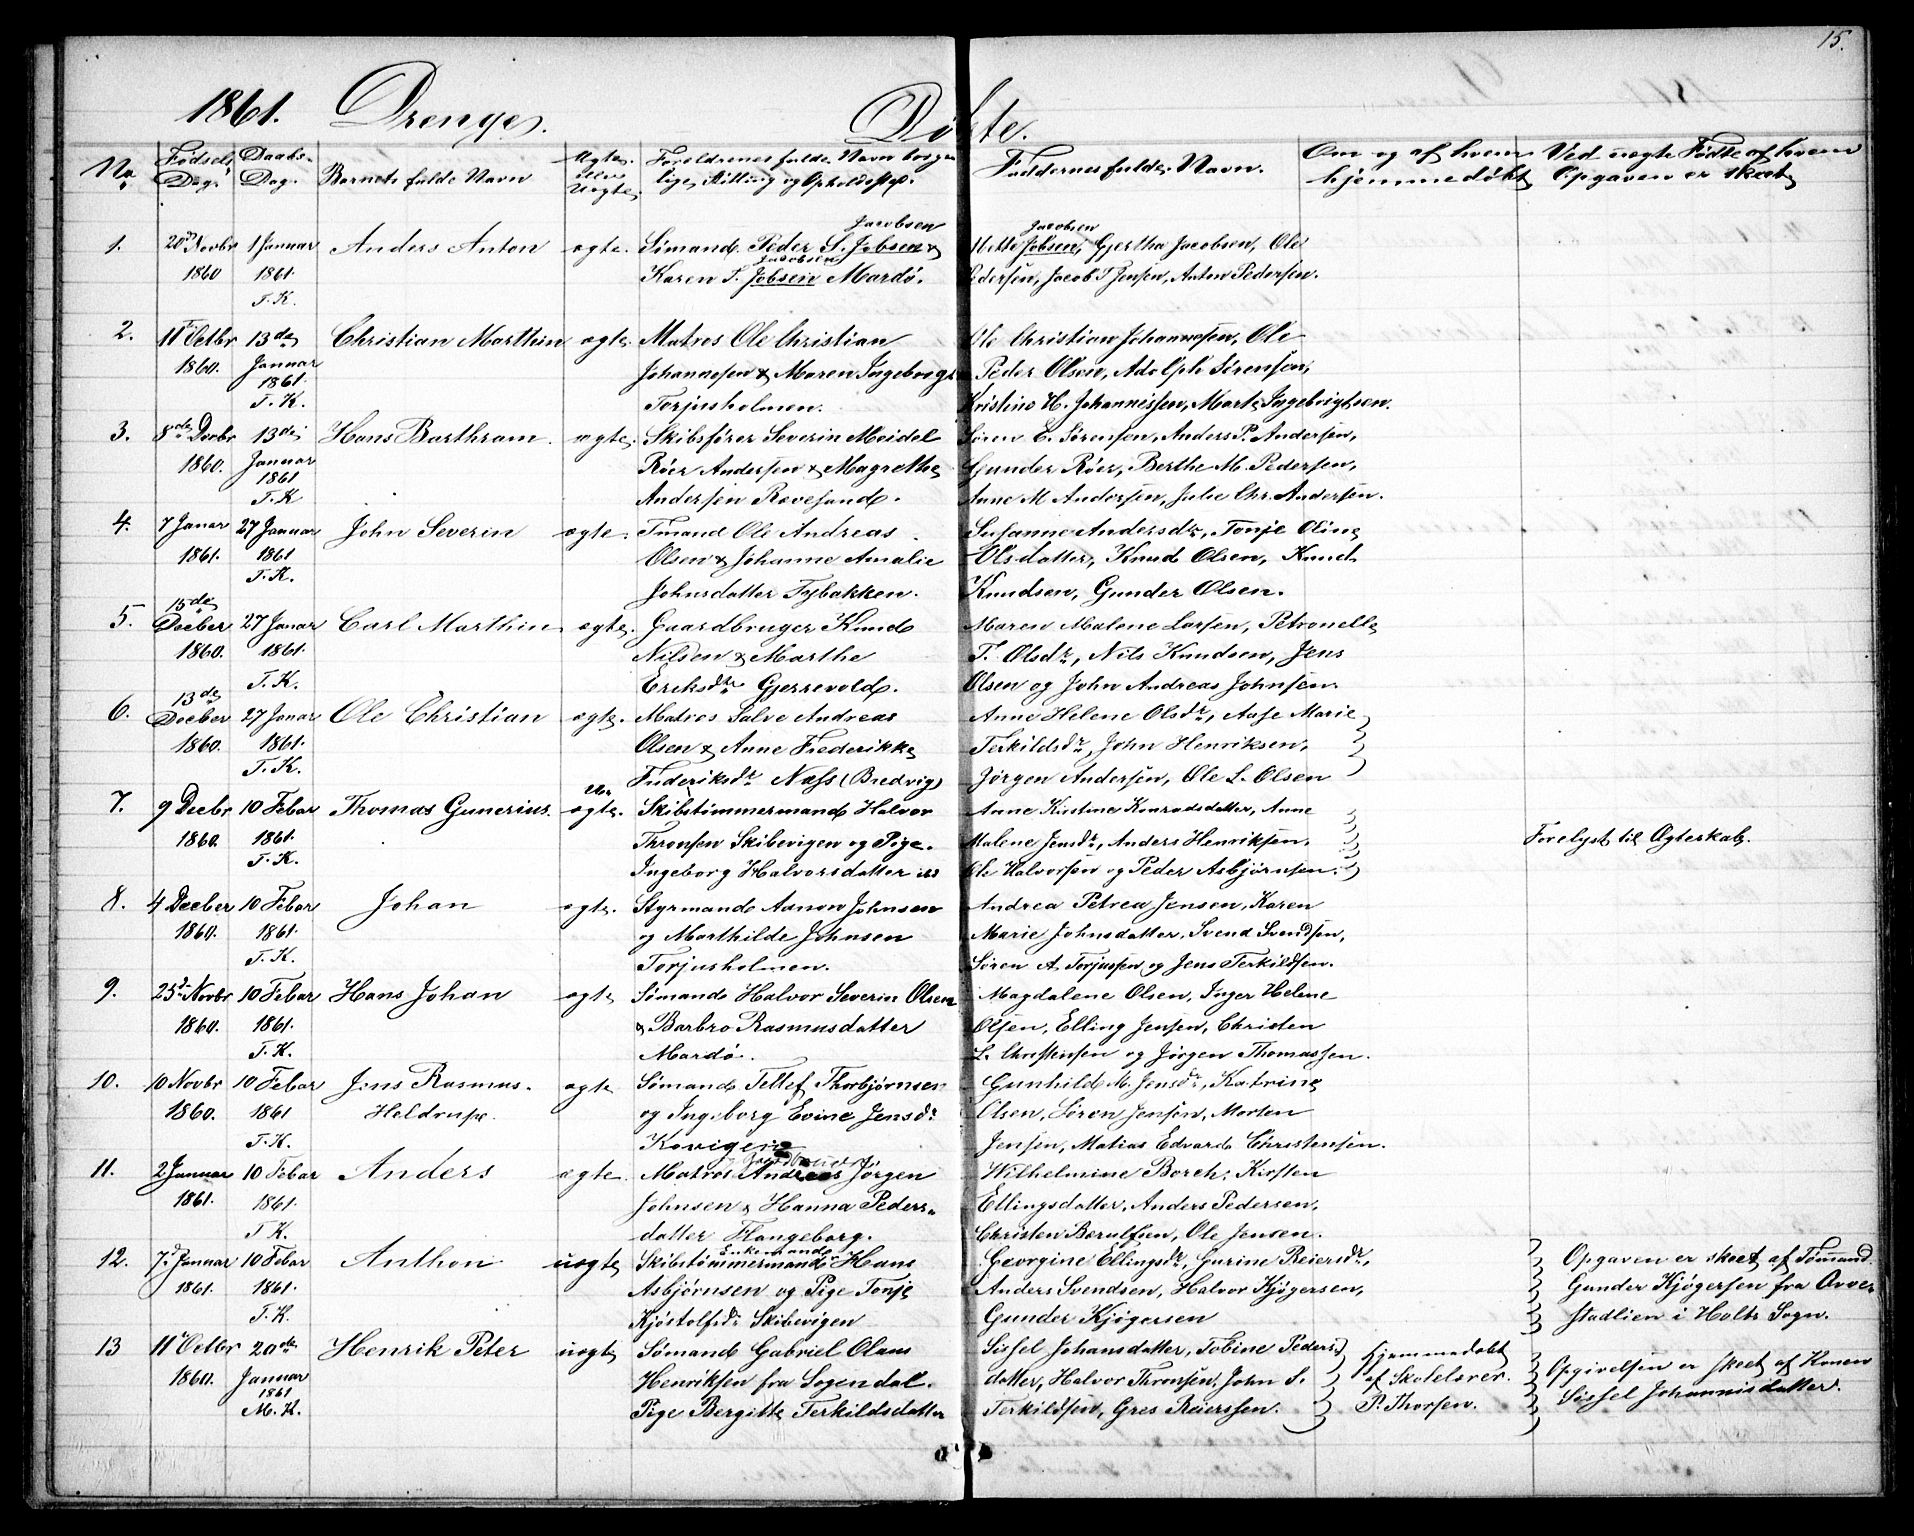 15.
1861. Drenge. Døbte.
No. Fødsels Dag. Daabs- Dag. Barnets fulde Navn Ægte eller Uægte. Forældrenes fulde Navn borger-
lige Stilling og Opholdssted. Faddernes fulde Navn. Om og af hvem hjemmedøbt Ved uægte Fødte af hvem Opgaven er skeet
1. 20de Novbr 1 Januar Anders Anton ægte. Sømand Peder S. Jobsen & Jacobsen Mette Jobsen, Jacobsen Gjertha Jacobsen, Ole
1860 1861. Karen T. Jobsen Jacobsen Mardø. Pedersen, Jacob T Jensen, Anton Pedersen.
T. K.
2. 11 Octbr 13de Christian Marthin ægte. Matros Ole Christian Ole Christian Johannesen, Ole
1860. Januar Johannesen & Maren Ingeborg Peder Olsen, Adolph Sørensen,
1861. T. K. Torjusholmen. Kristine H. Johannissen, Marte Ingebrigtsen.
3. 8de Decbr 13de Hans Barthram. ægte. Skibsfører Severin Meidel Søren E. Sørensen, Anders P. Andersen,
1860. Januar Röer Andersen & Magrethe Gunder Röer, Berthe M. Pedersen,
1861 T. K Andersen Revesand. Anne M Andersen, Julie Chr. Andersen.
4. 7 Januar 27 Januar John Severin ægte. Tmand Ole Andreas Susanne Andersdr, Tonje Oline
1861. 1861 Olsen & Johanne Amalie Olsdatter, Knud Olsen, Knud
T. K. Johnsdatter Tybakken. Knudsen, Gunder Olsen.
5. 15de Decber 27 Januar Carl Marthin ægte. Gaardbruger Knud Maren Malene Larsen, Petronelle
1860. 1861. Nilsen & Marthe T. Olsdr, Nils Knudsen, Jens
T. K. Eriksdr Gjerrevold. Olsen og John Andreas Johnsen.
6. 13de Decber 27 Januar Ole Christian ægte. Matros Salve Andreas Anne Helene Olsdr, Aase Marie
1860. 1861. Olsen & Anne Frederikke Terkildsdr, John Henriksen,
T. K. Frideriksdr Næss (Bredvig) Jørgen Andersen, Ole L. Olsen
7. 9 Decbr 10 Febar Thomas Gunerius. Uægte. Skibstømmermand Halvor Anne Kirstine Konradsdatter, Anne
1860. 1861. Thronsen Skibevigen og Pige. Malene Jensdr, Anders Henriksen, Forelyst til Ægteskab.
T. K. Ingeborg Halvorsdatter ibs Ole Halvorsen og Peder Asbjørnsen.
8. 4 Decber 10 Febar Johan ægte. Styrmand Aanon Johnsen Andrea Petrea Jensen, Karen
1860. 1861. og Marthilde Johnsen Marie Johnsdatter, Svend Svendsen,
T. K. Torjusholmen. Søren A Torjussen og Jens Terkildsen.
9. 25de Novbr 10 Febar Hans Johan ægte Sømand Halvor Severin Olsen Magdalene Olsen, Inger Helene
1860. 1861. & Barbro Rasmusdatter Olsen, Elling Jensen, Christen
T. K. Mardø. L. Christensen og Jørgen Thomassen.
10. 10 Novbr 10 Febar Jens Rasmus. ægte Sømand Tellef Thorbjørnsen Gunhild M. Jensdr, Katrine
1860. 1861 Heldrup. og Ingeborg Evine Jensdr Olsen, Søren Jensen, Morten
T. K. Kovigen Jensen, Matias Edvard Christensen.
11. 2 Januar 10 Febar Anders ægte. Matros Andreas Jørgen Wilhelmine Borch, Kirsten
1861. 1861. Johnsen & Hanna Peders- Ellingsdatter, Anders Pedersen,
T K. datter Flangeborg. Christen Berulfsen, Ole Jensen.
12. 7de Januar 10 Febar Anthon uægte Skibstømmermand Enkemand Hans Georgine Ellingsdr, Gurine Reiersdr, Opgaven er skeet af Tømand
1861. 1861. Asbjørnsen og Pige Tonje Anders Svendsen, Halvor Kjøgersen, Gunder Kjøgersen fra Over
T. K. Kjøstolfsdr Skibevigen Gunder Kjøgersen stadlien i Holts Sogn.
13 11 Octbr 20de Henrik Peter uægte Sømand Gabriel Olaus Sissel Johansdatter, Tobine Peders- Hjemmedøbt Opgivelsen er skeet af Konen
1860. Januar Henriksen fra Sogendal. datter, Halvor Thronsen, John S. af Skolelærer Sissel Johannisdatter.
1861 M. K. Pige Bergitte Terkildsdatter Terkildsen, Gres Reierssen. P. Thorsen.